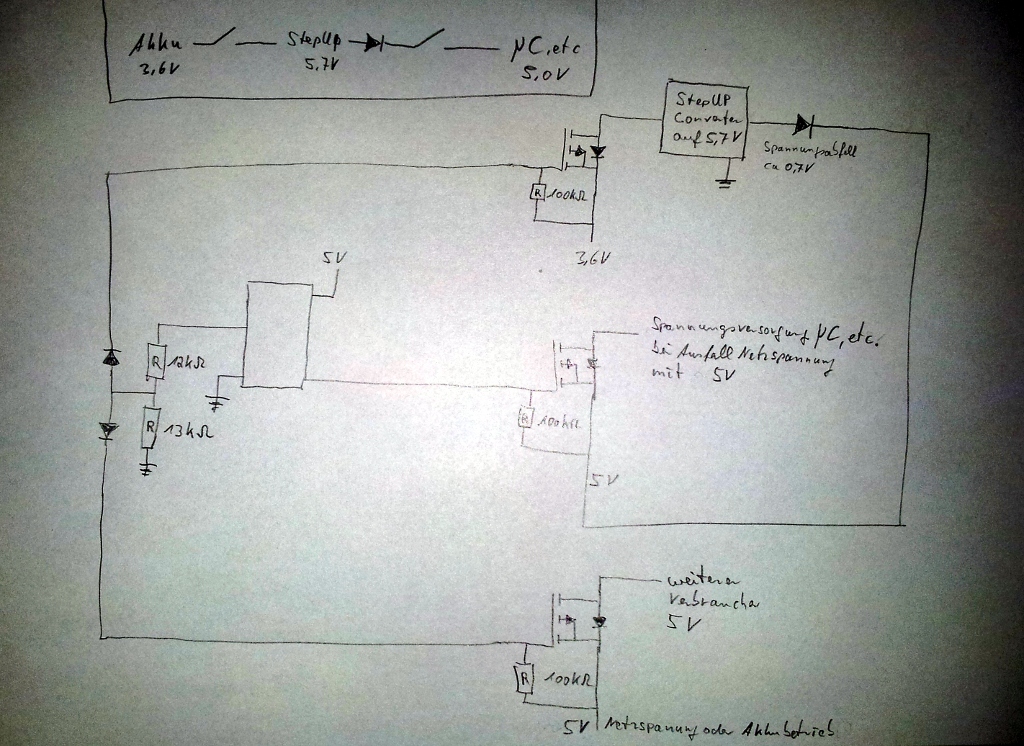 Akku StepUp µC, etc
3,6V 5,7V 5,0V
StepUP
Converter
auf 5,7V
Spannungsabfall
ca 0,7V
R 100kΩ
3,6V
5V
R 12kΩ
R 13kΩ
Spannungsversorgung µC, etc.
bei Ausfall Netzspannung
mit 5V
R 100kΩ
5V
weitere
Verbraucher
5V
R 100kΩ
5V Netzspannung oder Akkubetrieb